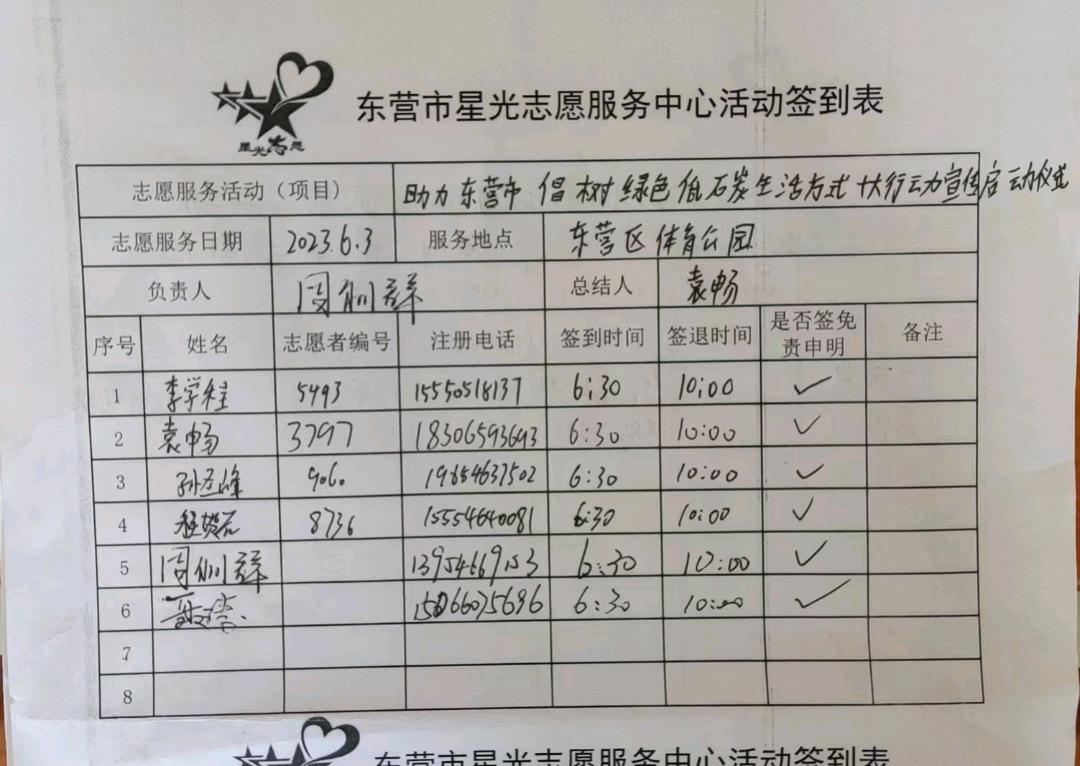 星光志愿
东营市星光志愿服务中心活动签到表
志愿服务活动（项目） 助力东营市倡树绿色低碳生活方式十大行动宣传启动仪式
志愿服务日期 2023.6.3 服务地点 东营区体育公园
负责人 周训群 总结人 袁畅
序号 姓名 志愿者编号 注册电话 签到时间 签退时间 是否签免责申明 备注
1 李学桂 5493 15550518137 6:30 10:00 ✓
2 袁畅 3797 18306593693 6:30 10:00 ✓
3 9060 19854637502 6:30 10:00 ✓
4 8736 15554640081 6:30 10:00 ✓
5 周训群 13954669153 6:30 10:00 ✓
6 15066075696 6:30 10:00 ✓
7
8
东营市星光志愿服务中心活动签到表